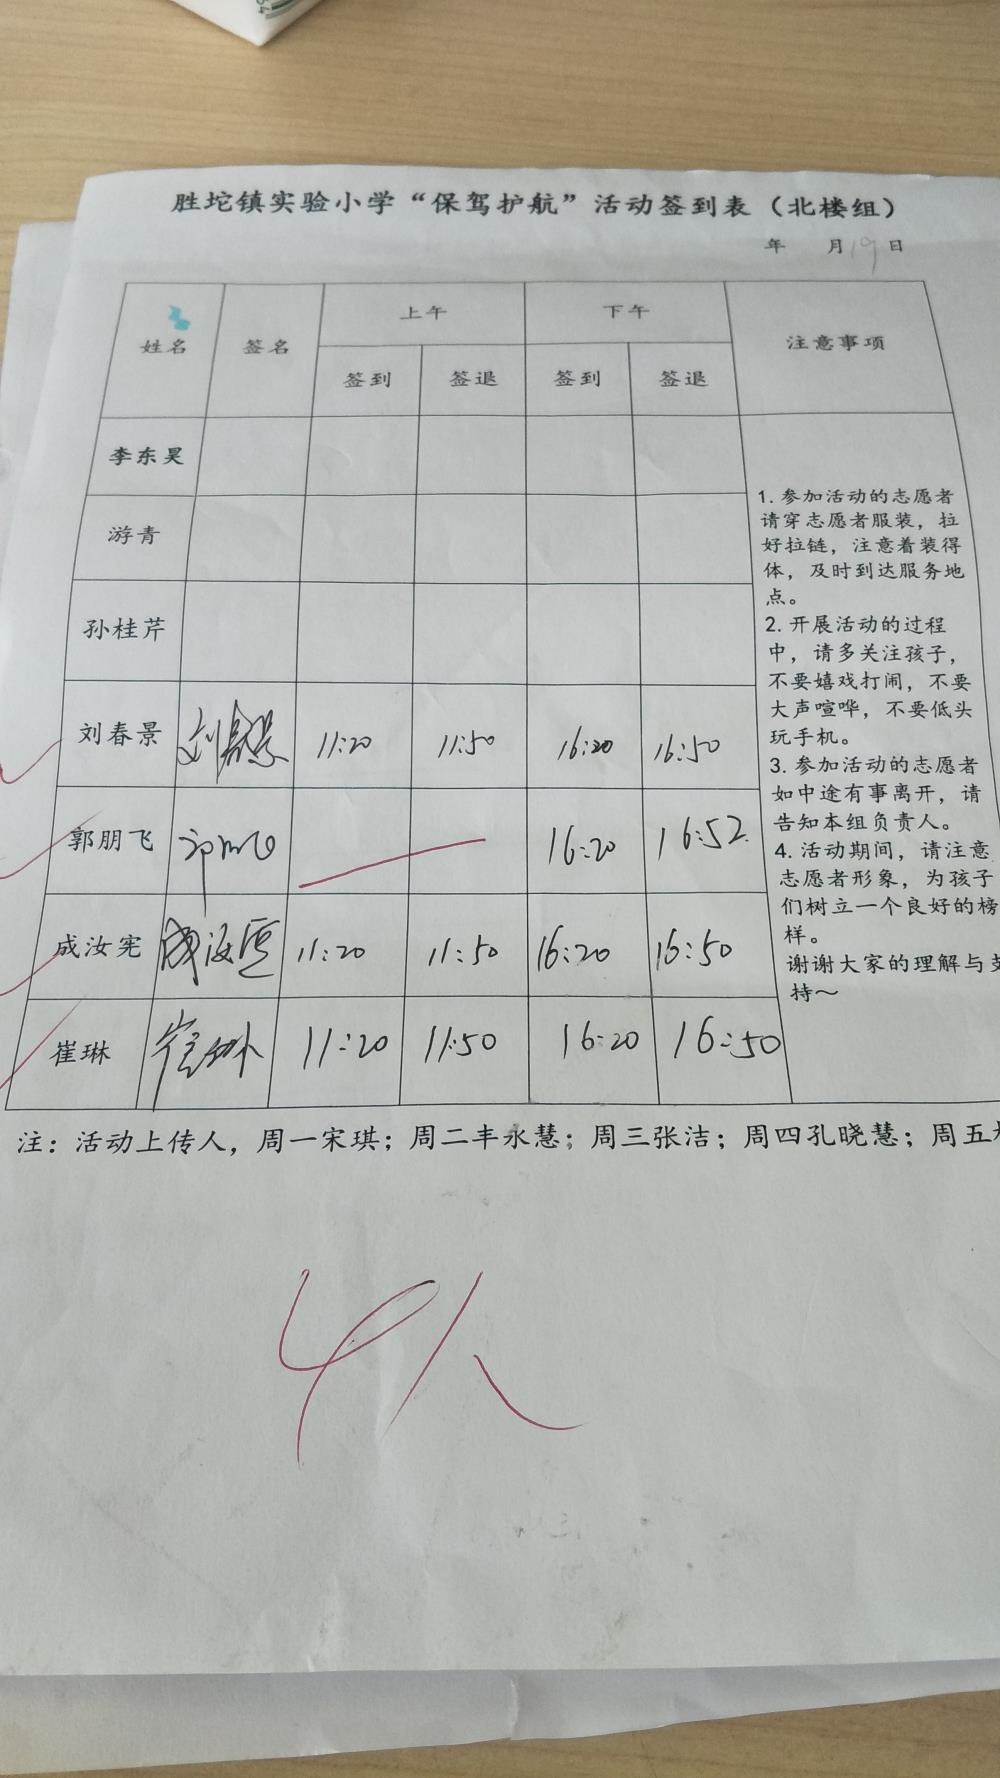 胜坨镇实验小学“保驾护航”活动签到表（北楼组）
年 月19日
姓名 签名 上午 下午 注意事项
签到 签退 签到 签退
李东昊
游青
孙桂芹
刘春景 刘春景 11:20 11:50 16:20 16:50
郭朋飞 16:20 16:52
成汝宪 成汝宪 11:20 11:50 16:20 16:50
崔琳 崔琳 11:20 11:50 16:20 16:50
1. 参加活动的志愿者
请穿志愿者服装，拉
好拉链，注意着装得
体，及时到达服务地
点。
2. 开展活动的过程
中，请多关注孩子，
不要嬉戏打闹，不要
大声喧哗，不要低头
玩手机。
3. 参加活动的志愿者
如中途有事离开，请
告知本组负责人。
4. 活动期间，请注意
志愿者形象，为孩子
们树立一个良好的榜
样。
谢谢大家的理解与支
持～
注：活动上传人，周一宋琪；周二丰永慧；周三张洁；周四孔晓慧；周五
4人